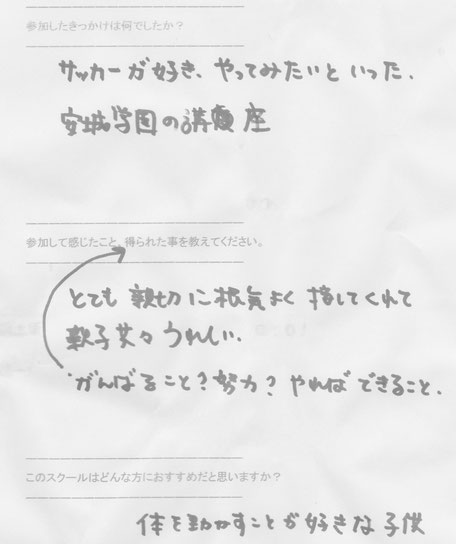 参加したきっかけは何でしたか？
サッカーが好き、やってみたいといった.
安城学園の講座
参加して感じたこと、得られた事を教えてください。
とても 親切に根気よく 指してくれて
親子共々 うれしい.
がんばること？努力？ やれば できること.
このスクールはどんな方におすすめだと思いますか？
体を動かすことが好きな子供